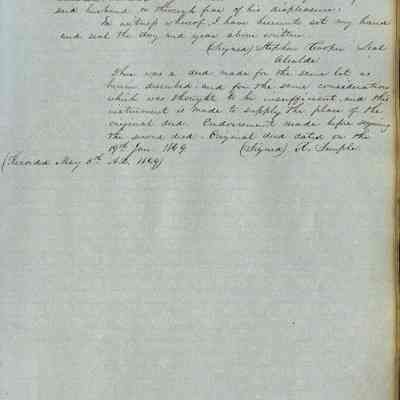 said husband, or through fear of his displeasure.
In witness whereof, I have hereunto set my hand
and seal the day and year above written
(Signed) Stephen Cooper Seal
Alcalde
There was a deed made for the same lot as
herein described and for the same consideration
which was thought to be insufficient, and this
instrument is made to supply the place of the
original deed. Endorsement made before signing
the second deed. Original deed dated on the
19th Jan. 1849 (Signed) R. Semple
(Recorded May 5th A.D. 1849)